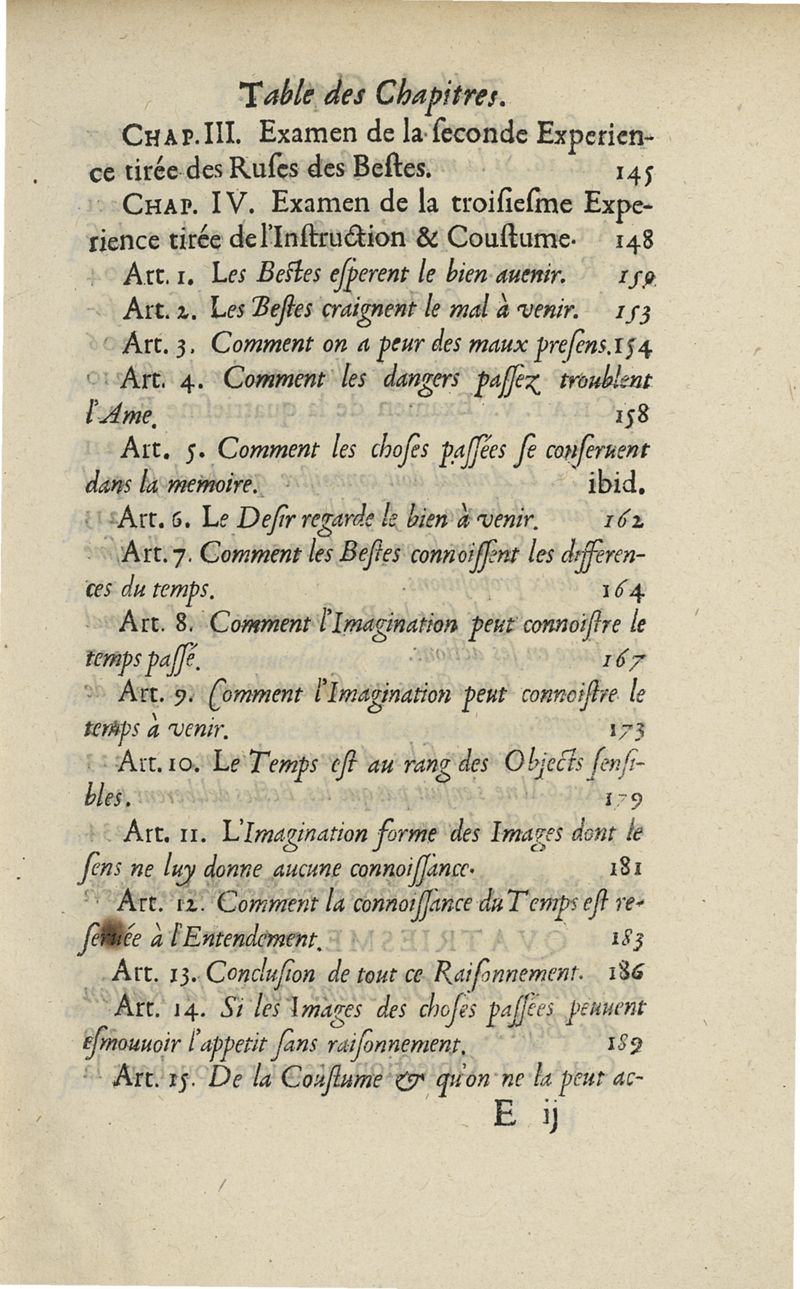 Table des Chapitres.
CHAP. III. Examen de la ſeconde Experien-
ce tirée des Ruſes des Beſtes. 145
CHAP. IV. Examen de la troiſieſme Expe-
rience tirée de l'Inſtruction & Couſtume. 148
Art. 1. Les Beſtes eſperent le bien auenir.
Art. 2. Les Beſtes craignent le mal à venir. 153
Art. 3. Comment on a peur des maux preſens. 154
Art. 4. Comment les dangers paſſez troublent
l'Ame. 158
Art. 5. Comment les choſes paſſées ſe conſeruent
dans la memoire. ibid.
Art. 6. Le Deſir regarde le bien à venir. 162
Art. 7. Comment les Beſtes connoiſſent les differen-
ces du temps. 164
Art. 8. Comment l'Imagination peut connoiſtre le
temps paſſé. 167
Art. 9. Comment l'Imagination peut connoiſtre le
temps à venir. 173
Art. 10. Le Temps eſt au rang des Objects ſenſi-
bles. 179
Art. 11. L'Imagination forme des Images dont le
ſens ne luy donne aucune connoiſſance. 181
Art. 12. Comment la connoiſſance du Temps eſt re-
ſeruée à l'Entendement. 183
Art. 13. Concluſion de tout ce Raiſonnement. 186
Art. 14. Si les Images des choſes paſſées peuuent
eſmouuoir l'appetit ſans raiſonnement. 189
Art. 15. De la Couſtume & qu'on ne la peut ac-
E ij